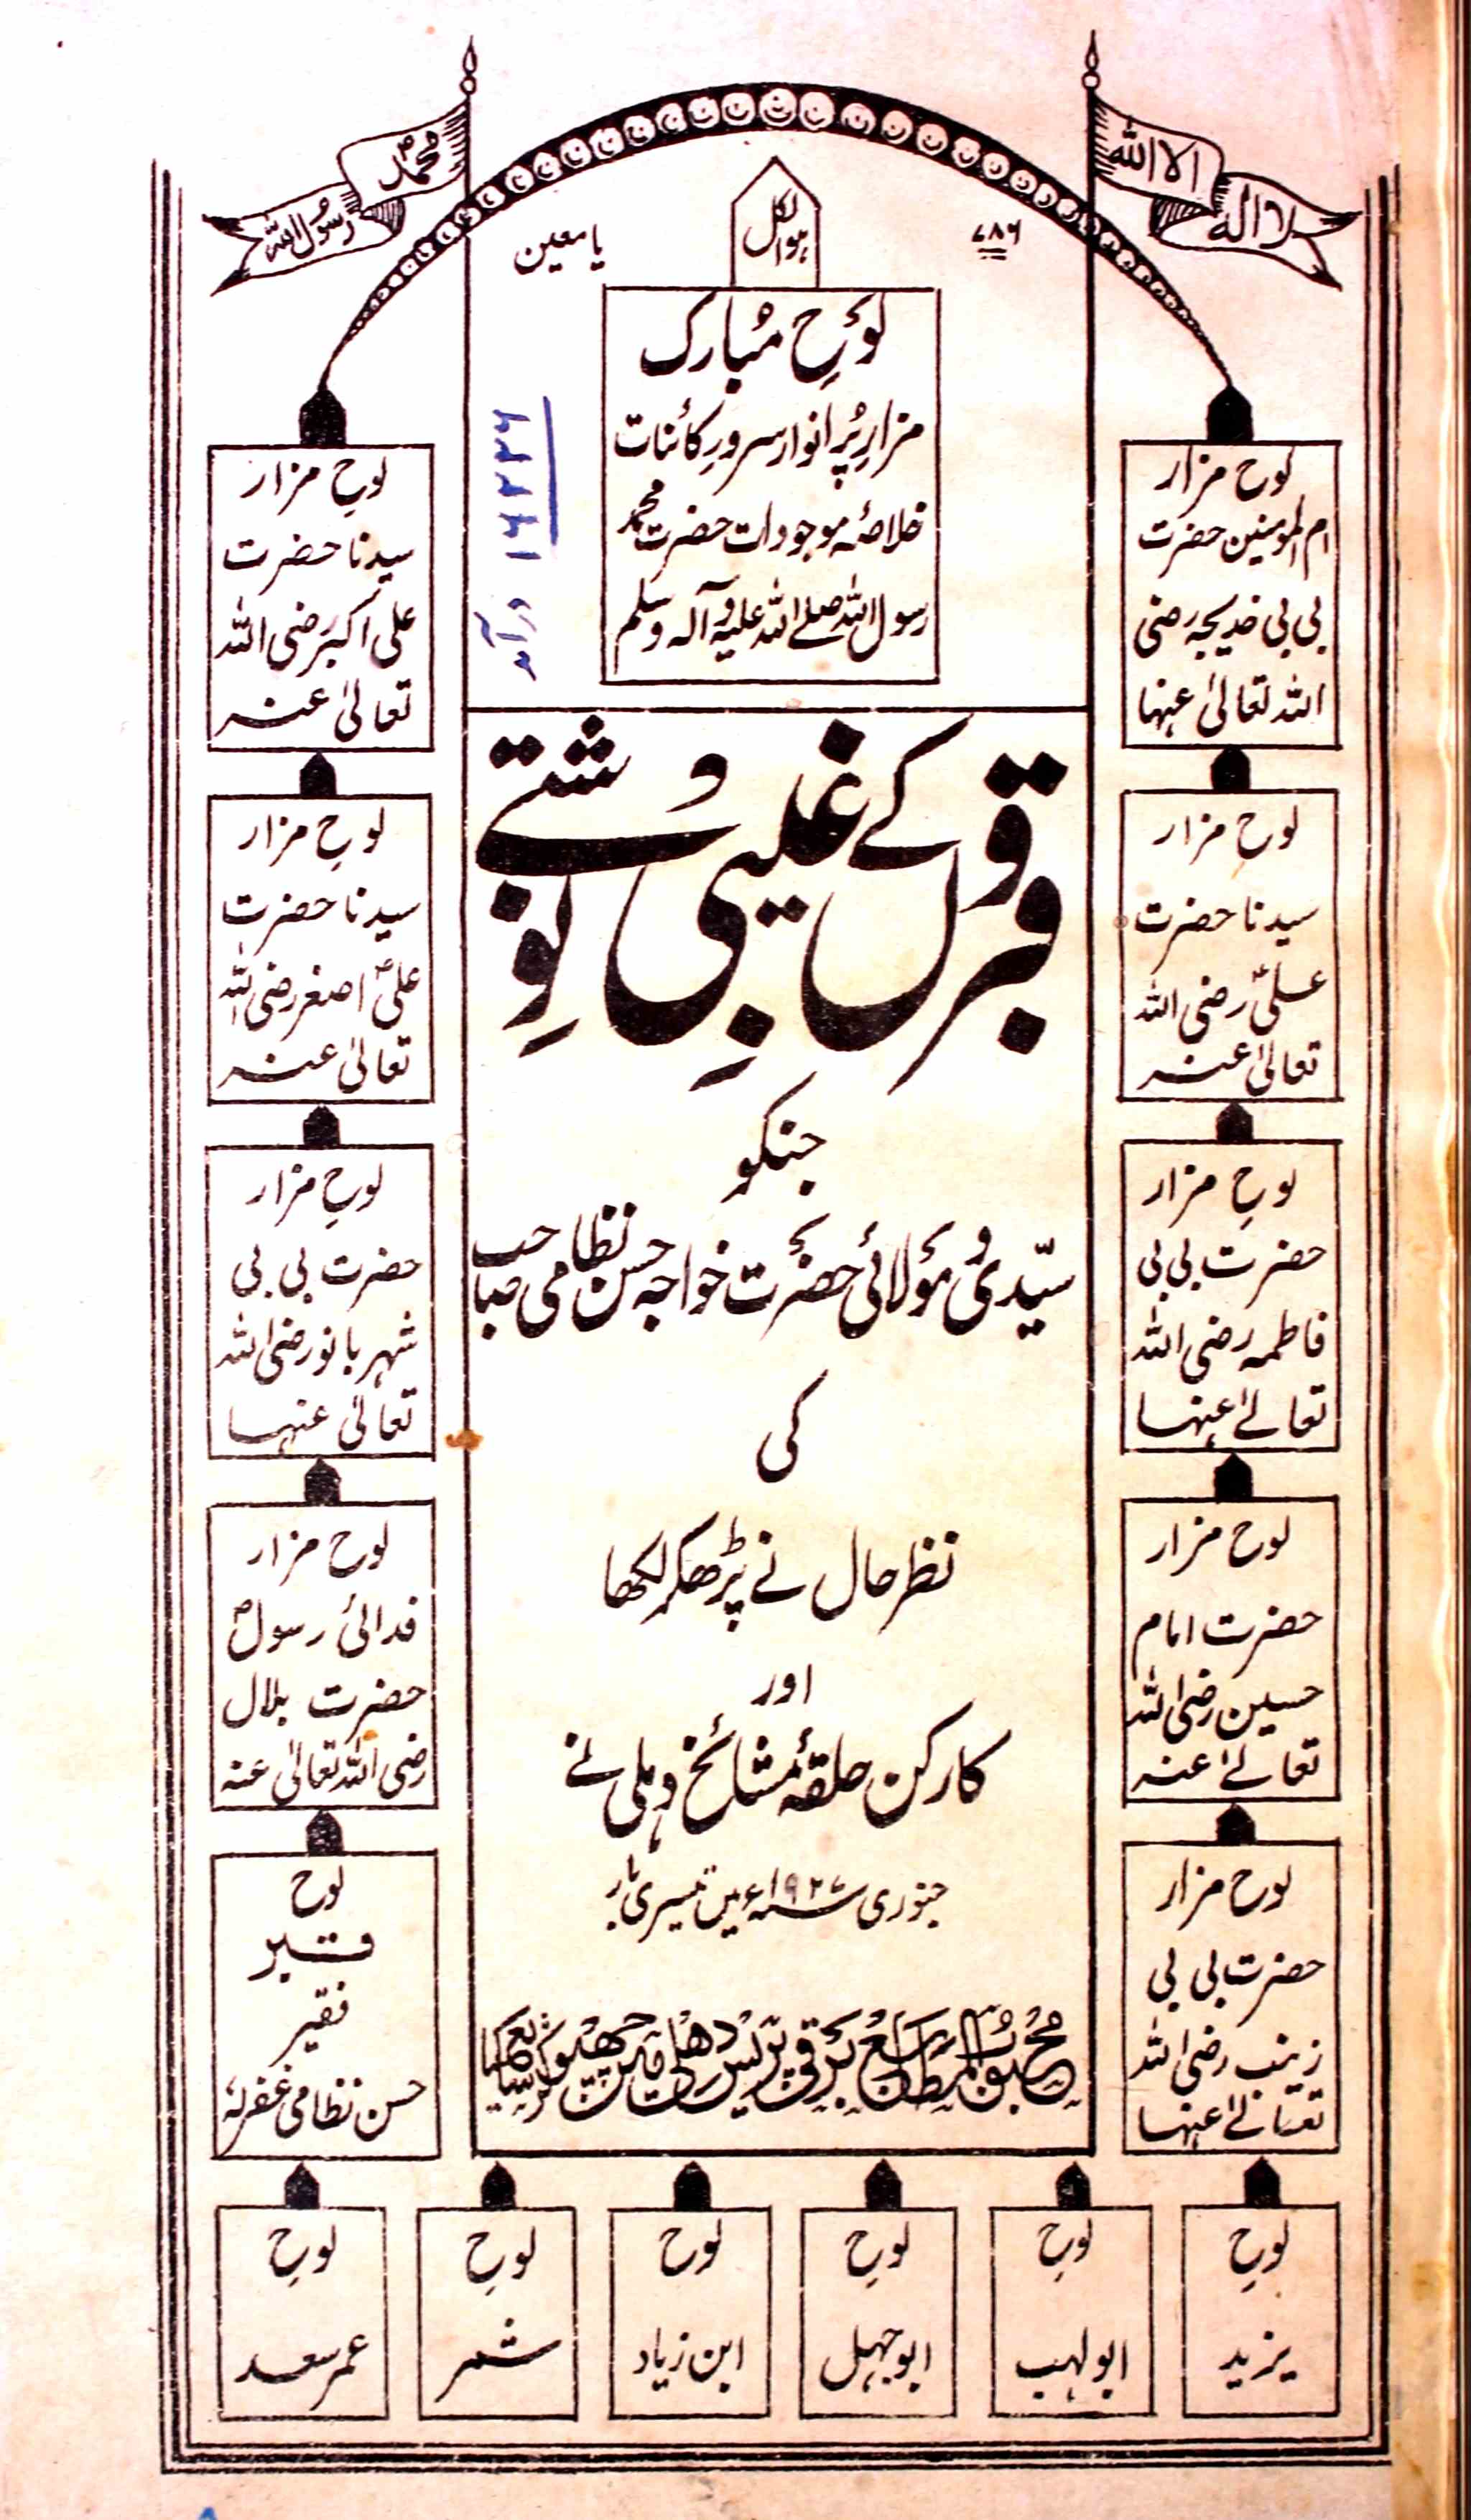 لا الہ
الا اللہ
محمدؐ
رسول اللہ
۷۸۶
ھوالکل
یا معین
لوحِ مُبارک
مزارِ پُر انوار سرورِ کائنات
خلاصۂ موجودات حضرت محمدؐ
رسول اللہ صلے اللہ علیہ و آلہ وسلم
۱۶۲۲۶
درآمد
قبروں کے غیبی نوشتے
جنکو
سیّدی و مولائی حضرت خواجہ حسن نظامی صاحب
کی
نظر حال نے پڑھکر لکھا
اور
کارکن حلقۂ مشائخ دہلی نے
جنوری ۱۹۲۷ء میں تیسری بار
محبوب المطابع برقی پریس دھلی میں چھپوا کر شایع کیا
لوح مزار
ام المومنین حضرت
بی بی خدیجہ رضی
اللہ تعالیٰ عنہا
لوح مزار
سیدنا حضرت
علیؓ رضی اللہ
تعالیٰ عنہ
لوحِ مزار
حضرت بی بی
فاطمہ رضی اللہ
تعالےٰ عنہا
لوح مزار
حضرت امام
حسین رضی اللہ
تعالےٰ عنہ
لوح مزار
حضرت بی بی
زینب رضی اللہ
تعالےٰ عنہا
لوحِ مزار
سیدنا حضرت
علی اکبر رضی اللہ
تعالیٰ عنہ
لوحِ مزار
سیدنا حضرت
علی اصغر رضی اللہ
تعالیٰ عنہ
لوحِ مزار
حضرت بی بی
شہر بانو رضی اللہ
تعالیٰ عنہا
لوح مزار
فدائی رسولؐ
حضرت بلال
رضی اللہ تعالیٰ عنہ
لوح
قبر
فقیر
حسن نظامی غفرلہٗ
لوحِ
یزید
لوحِ
ابو لہب
لوحِ
ابو جہل
لوح
ابن زیاد
لوحِ
شمر
لوحِ
عمر سعد